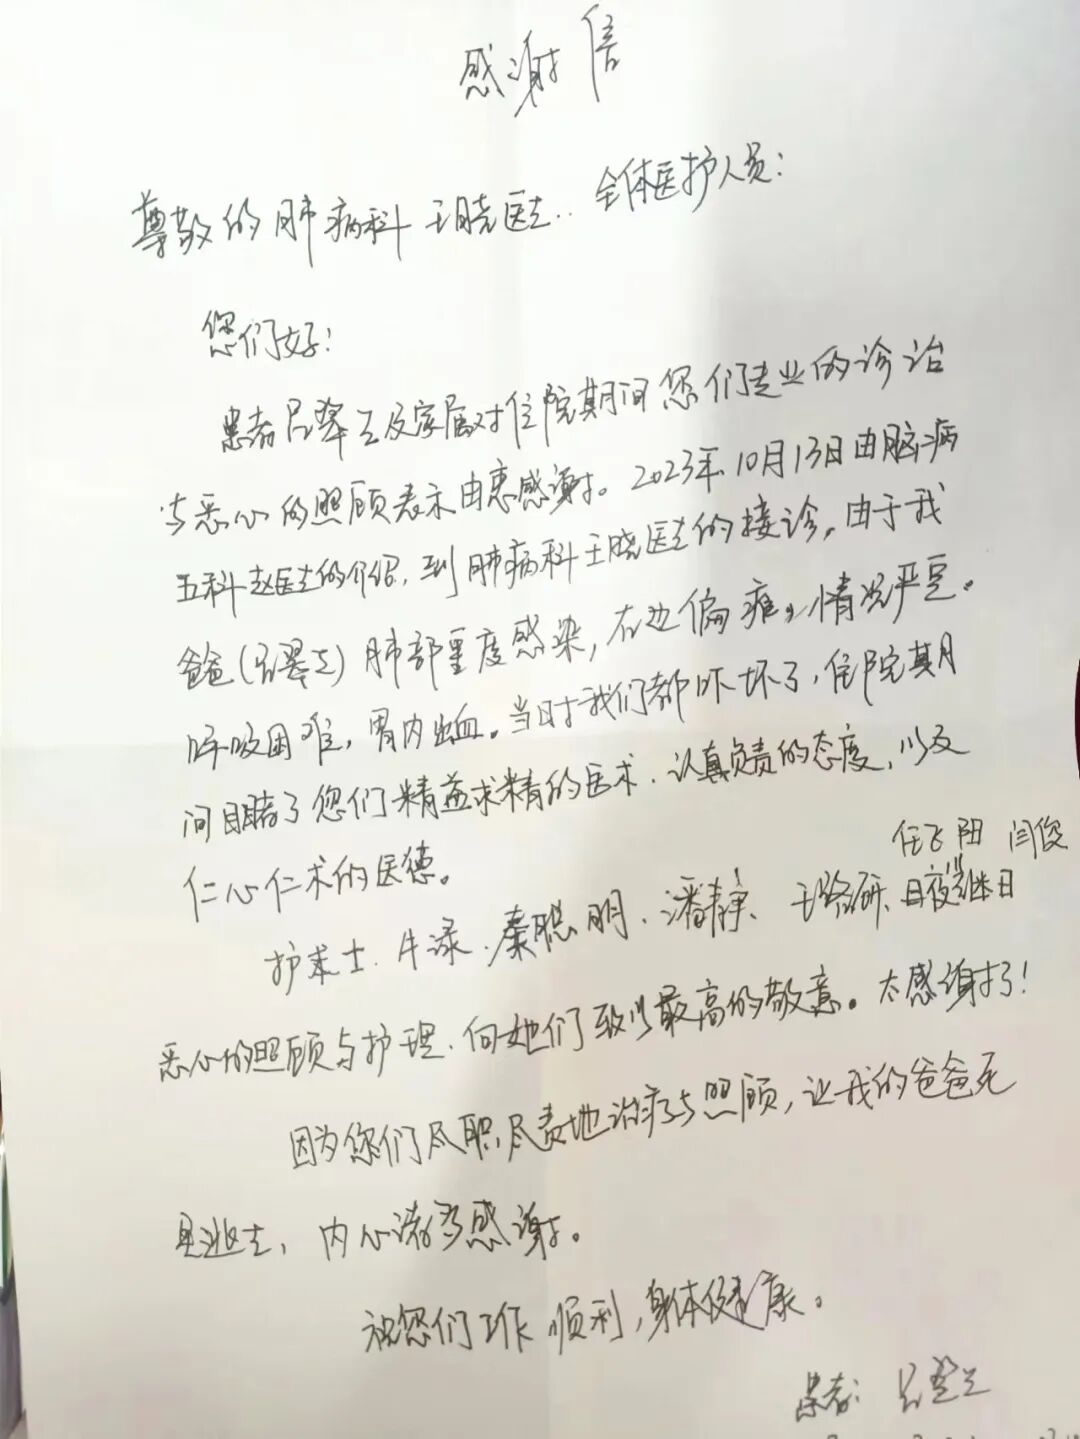 感谢信
尊敬的肺病科王晓医生..全体医护人员：
您们好！
患者吕翠兰及家属对住院期间您们专业的诊治
与悉心的照顾表示由衷感谢。2023年10月13日由脑病
五科赵医生的介绍，到肺病科王晓医生的接诊，由于我
爸爸（吕翠兰）肺部重度感染，右边偏瘫，情况严重。
呼吸困难，胃内出血。当时我们都吓坏了，住院期
间目睹了您们精益求精的医术、认真负责的态度，以及
仁心仁术的医德。
任飞阳 闫俊
护士、牛渌、秦聪明、潘静、王路研、日夜继日
悉心的照顾与护理、向她们致以最高的敬意。太感谢了！
因为您们尽职、尽责地治疗与照顾，让我的爸爸死
里逃生，内心诸多感谢。
祝您们工作顺利，身体健康。
患者：吕翠兰